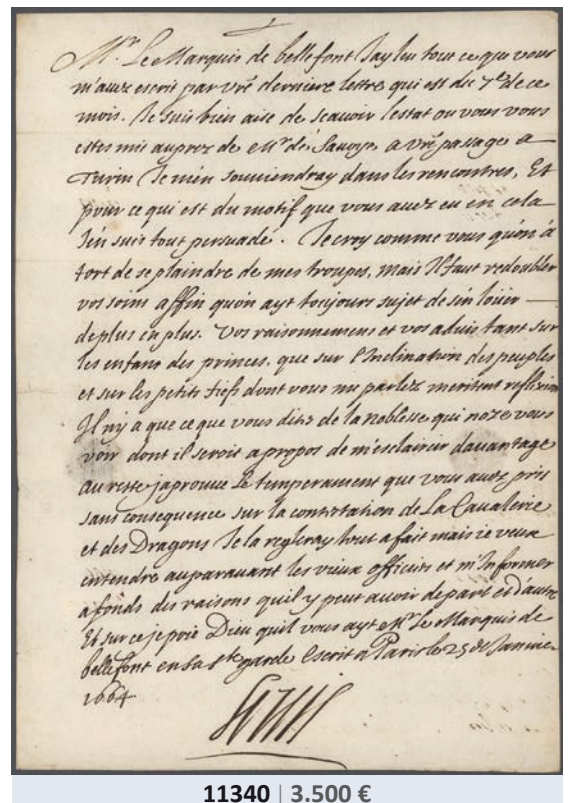 Mr. Le Marquis de bellefont Jay leu tout ce que vous
m'auez escrit par vrē derniere lettre qui est du 7e de ce
mois. Je suis bien aise de scauoir lestat ou vous vous
estes mis auprez de Mr de Sauoye a vrē passage a
Turin Je m'en souuiendray dans les rencontres, Et
pour ce qui est du motif que vous auez eu en cela
J'en suis tout persuadé. Je croy comme vous qu'on a
tort de se plaindre de mes troupes, mais Il faut redoubler
vos soins affin qu'on ayt toujours sujet de s'en louer
de plus en plus. Vos raisonnemens et vos aduis tant sur
les enfans des princes, que sur l'Inclination des peuples
et sur les petits fiefs dont vous me parlez meritent reflexion
Il ny a que ce que vous dites de la noblesse qui noze vous
voir dont il seroit apropos de m'esclaircir dauantage
Au reste japrouue Le temperament que vous auez pris
sans consequence sur la contestation de La Caualerie
et des Dragons Je la regleray tout a fait mais ie veux
entendre auparauant les vieux officiers et m'Informer
a fonds des raisons quil y peut auoir de part et d'autre
Et sur ce je prie Dieu quil vous ayt Mr Le Marquis de
bellefont en sa ste garde Escrit a Paris le 25 de Januier
1664
Louis
11340 | 3.500 €